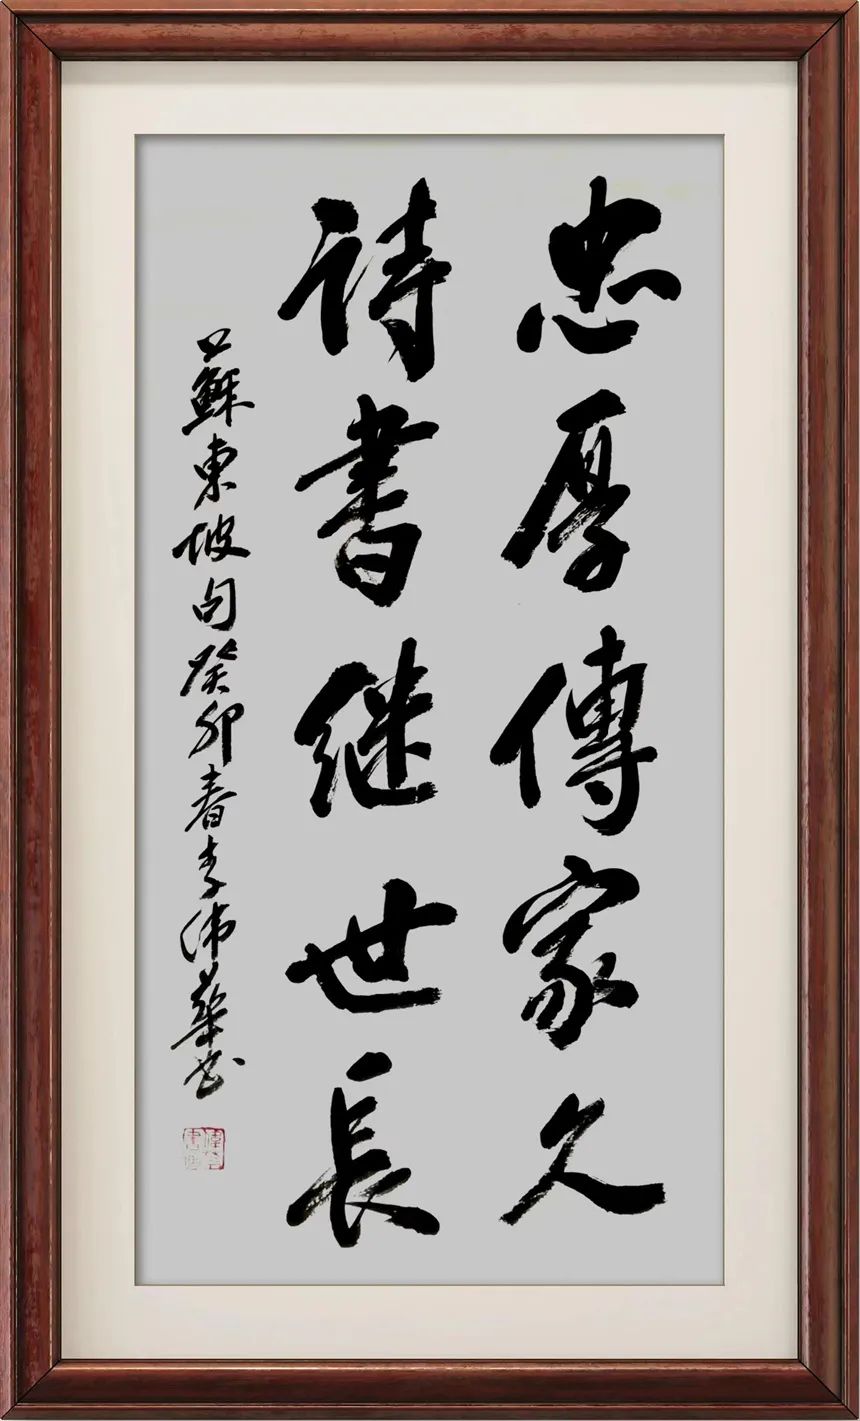 忠厚傳家久
詩書继世長
蘇東坡句癸卯春李伟華书